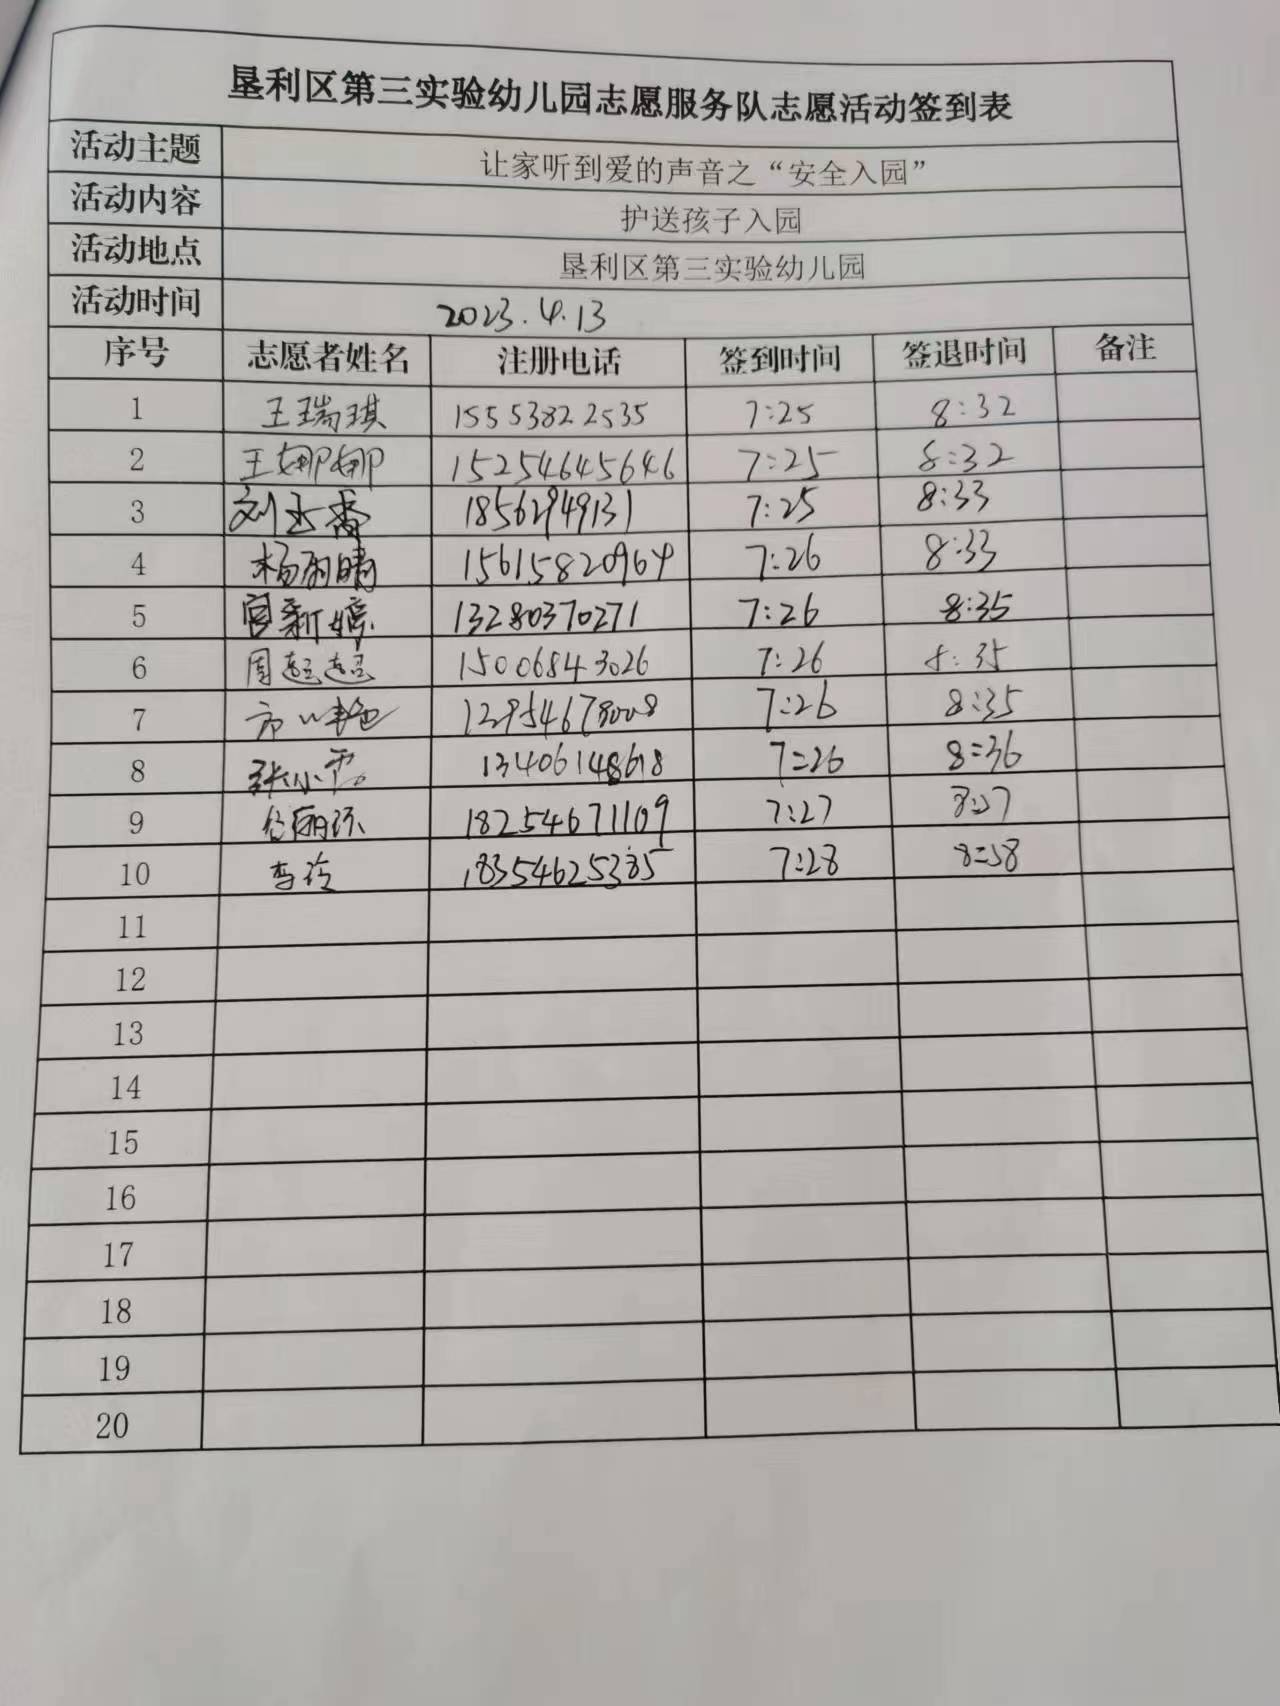 垦利区第三实验幼儿园志愿服务队志愿活动签到表
活动主题 让家听到爱的声音之“安全入园”
活动内容 护送孩子入园
活动地点 垦利区第三实验幼儿园
活动时间 2023.4.13
序号 志愿者姓名 注册电话 签到时间 签退时间 备注
1 王瑞琪 15553822535 7:25 8:32
2 王娜娜 15254645646 7:25 8:32
3 刘玉香 18562949131 7:25 8:33
4 杨雨晴 15615820964 7:26 8:33
5 宫新婷 13280370271 7:26 8:35
6 周超超 15006843026 7:26 8:35
7 7:26 8:35
8 张小霞 13406148618 7:26 8:36
9 18254671109 7:27
10 李玲 18354625385 7:28 8:38
11
12
13
14
15
16
17
18
19
20